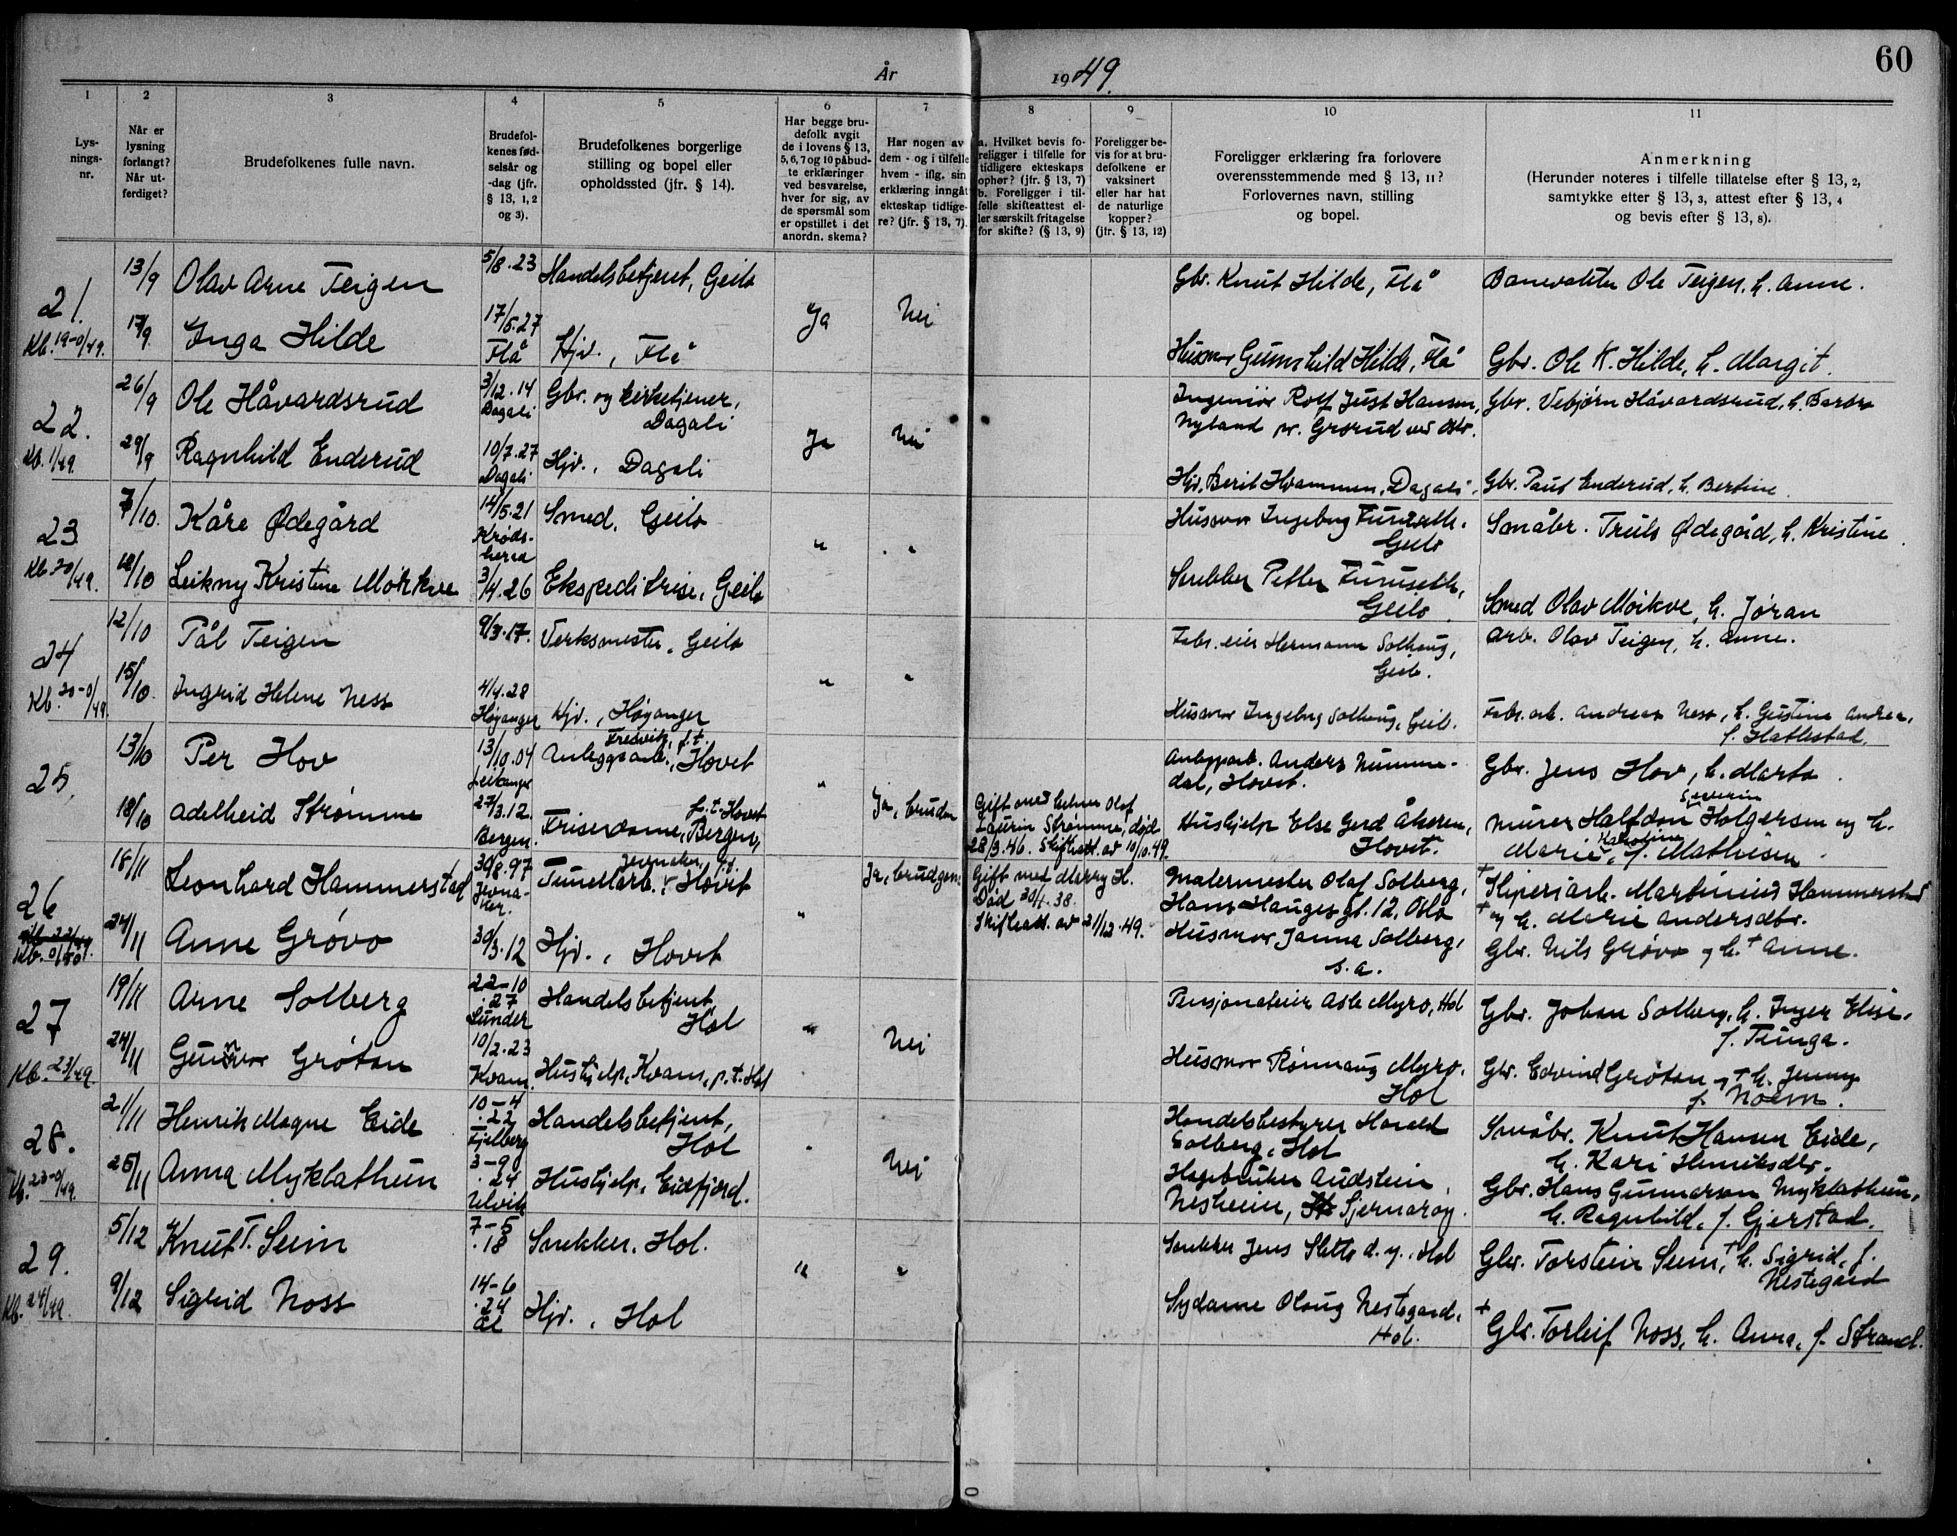 60
År 1949.
1
2
3
4
5
6
7
8
9
10
11
Lys-
nings-
nr.
Når er
lysning
forlangt?
Når ut-
ferdiget?
Brudefolkenes fulle navn.
Brudefol-
kenes fød-
selsår og
-dag (jfr.
§ 13, 1, 2
og 3).
Brudefolkenes borgerlige
stilling og bopel eller
opholdssted (jfr. § 14).
Har begge bru-
defolk avgit
de i lovens § 13,
5, 6, 7 og 10 påbud-
te erklæringer
ved besvarelse,
hver for sig, av
de spørsmål som
er opstillet i det
anordn. skema?
Har nogen av
dem - og i tilfelle
hvem - iflg. sin
erklæring inngåt
ekteskap tidlige-
re? (jfr. § 13, 7).
a. Hvilket bevis fo-
religger i tilfelle for
tidligere ekteskaps
ophør? (jfr. § 13, 7)
b. Foreligger i til-
felle skifteattest el-
ler særskilt fritagelse
for skifte? (§ 13, 9)
Foreligger be-
vis for at bru-
defolkene er
vaksinert
eller har hat
de naturlige
kopper?
(jfr. § 13, 12)
Foreligger erklæring fra forlovere
overensstemmende med § 13, 11?
Forlovernes navn, stilling
og bopel.
Anmerkning
(Herunder noteres i tilfelle tillatelse efter § 13, 2,
samtykke etter § 13, 3, attest efter § 13, 4
og bevis efter § 13, 8).
21.
13/9 Olav Arne Teigen 5/8.23 Handelsbetjent, Geilo Gbr. Knut Hilde, Flå Banevokter Ole Teigen, h. Anne.
Kb. 19-0/49. 17/9. Inga Hilde 17/5.27 Flå Hjv., Flå Ja Nei Husmor Gunnhild Hilde, Flå Gbr. Ole K. Hilde, h. Margit.
22.
26/9 Ole Håvardsrud 3/12.14 Dagali Gbr. og kirketjener, Dagali Ingeniør Rolf Just Hansen, Gbr. Vebjørn Håvardsrud, h. Barbro
Nyland pr. Grorud ved Oslo.
Kb. 1/49. 29/9 Ragnhild Enderud 10/7.27 Dagali Hjv., Dagali Ja Nei Hjv. Berit Hvammen, Dagali, Gbr. Paul Enderud, h. Bertine.
23
7/10. Kåre Ødegård 14/5.21 Krøds-
herad Smed, Geilo " " Husmor Ingeborg Furuseth, Geilo Småbr. Truls Ødegård, h. Kristine.
Kb. 20/49. 12/10 Leikny Kristine Møkkve 3/4.26 Ekspeditrise, Geilo Snekker Petter Furuseth, Geilo. Smed Olav Moikve, h. Jøran
24
12/10 Pål Teigen 9/3.17. Verksmester, Geilo Fabr. eier Hermann Solhaug, Geilo. Arb. Olav Teigen, h. Anne.
Kb. 20-0/49. 15/10. Ingrid Helene Ness 4/4.28 Høyanger Hjv., Høyanger " " Husmor Ingeborg Solhaug, Geilo. Fabr. arb. Andreas Ness, h. Gustine Andrea,
f. Hatlestad.
25.
13/10 Per Hov 13/10.04 Leikanger Anleggsarb., Fresvik, p.t. Hovet " Anleggsarb. Anders Numme-
dal, Hovet. Gbr. Jens Hov, h. Marta.
18/10 Adelheid Strømme 27/3.12. Bergen. Frisørdame, Bergen, p.t. Hovet Ja, bruden Gift med Olaf
Laurin Strømme, død
28/3.46. Skifteatt. av 10/10.49. Hushjelp Else Gerd Åkeren, Hovet. Murer Halfdan Severin Holgersen og h.
Marie Karoline, f. Mathisen.
26
16/11 Leonhard Hammerstad 30/8.97 Jevna-
ker. Tunellarb., Jevnaker, p.t. Hovet Ja, brudgom Gift med Merry H.
Død 30/1.38.
Skifteatt. av 21/12.49. Malermester Olaf Solberg,
Hans Hauges gt. 12, Oslo + Sliperiarb. Martinius Hammerstad
+ og h. Marie Andersdtr.
Kb. 0/50. 24/11 Anne Grøvo 30/3.12 Hjv., Hovet " Husmor Janna Solberg,
s.a. Gbr. Nils Grøvo og h. + Anne.
27
19/11 Arne Solberg 22-10
.27
Lunder Handelsbetjent Hol " Pensjonateier Asle Myro, Hol Gbr. Johan Solberg, h. Inger Elise,
f. Tunga.
Kb. 23/49. 24/11 Gunvor Grøtan 10/2.23 Kvam. Hushjelp, Kvam, p.t. Hol Nei Husmor Rønnaug Myro, Hol Gbr. Edvind Grøtan og + h. Jenny
f. Noem.
28.
21/11 Henrik Magne Eide 10-4
.22
Fjelberg Handelsbetjent, Hol Handelsbestyrer Harald
Solberg, Hol Småbr. Knut Hansen Eide,
h. Kari Henriksdtr.
Kb. 23-0/49. 26/11 Anna Myklathun 3-9
.24
Ulvik Hushjelp, Eidfjord. " Nei Hagebruker Audstein
Nesheim, Sjernarøy. Gbr. Hans Gunnarson Myklathun,
h. Ragnhild, f. Gjerstad.
29.
5/12 Knut T. Seim 7-5
.18 Snekker, Hol. Snekker Jens Sletto d.y., Hol Gbr. Torstein Seim, + h. Sigrid, f.
Nestegård
Kb. 24/49. 9/12 Sigrid Noss 14-6
.24
Ål Hjv., Hol " " Sydame Olaug Nestegard,
Hol. + Gbr. Torleif Noss, h. Anna, f. Strand.